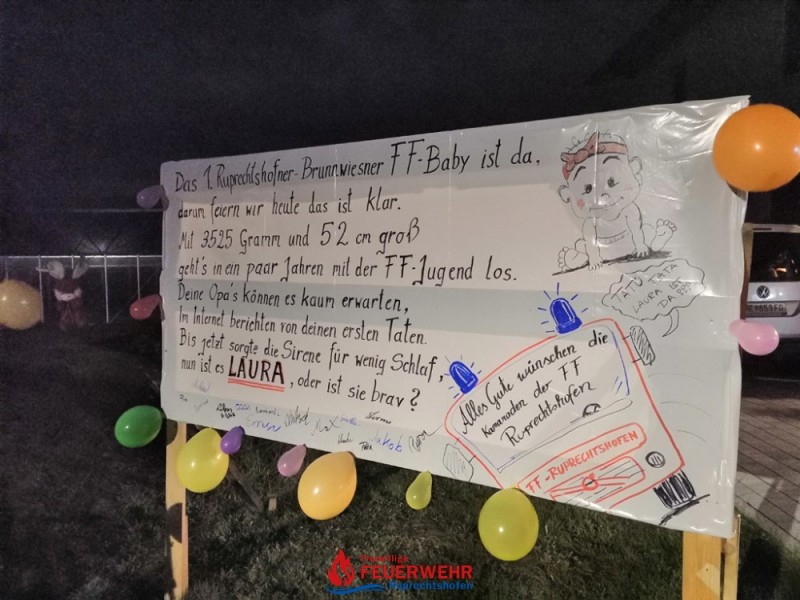 Das 1. Ruprechtshofner-Brunnwiesner FF-Baby ist da,
darum feiern wir heute das ist klar.
Mit 3525 Gramm und 52 cm groß
geht's in ein paar Jahren mit der FF-Jugend los.
Deine Opa's können es kaum erwarten,
Im Internet berichten von deinen ersten Taten.
Bis jetzt sorgte die Sirene für wenig Schlaf,
nun ist es LAURA, oder ist sie brav?
TATÜ TATA
LAURA IST
DA
Alles Gute wünschen die
Kamaraden der FF
Ruprechtshofen
FF-RUPRECHTSHOFEN
Jakob
Freiwillige
FEUERWEHR
Ruprechtshofen